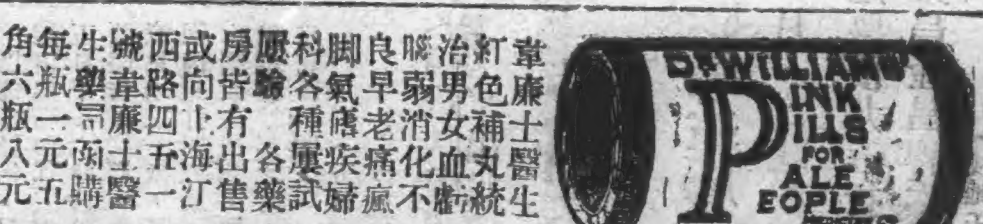 韋廉士醫生
紅色補丸統
治男女血虧
腦弱消化不
良早老痛瘋
脚氣瘧疾婦
科各種屢試
屢驗 各藥
房皆有出售
或向上海江
西路四五一
號韋廉士醫
生藥局函購
每瓶一元五
角六瓶八元
DR WILLIAMS'
PINK
PILLS
FOR
PALE
PEOPLE